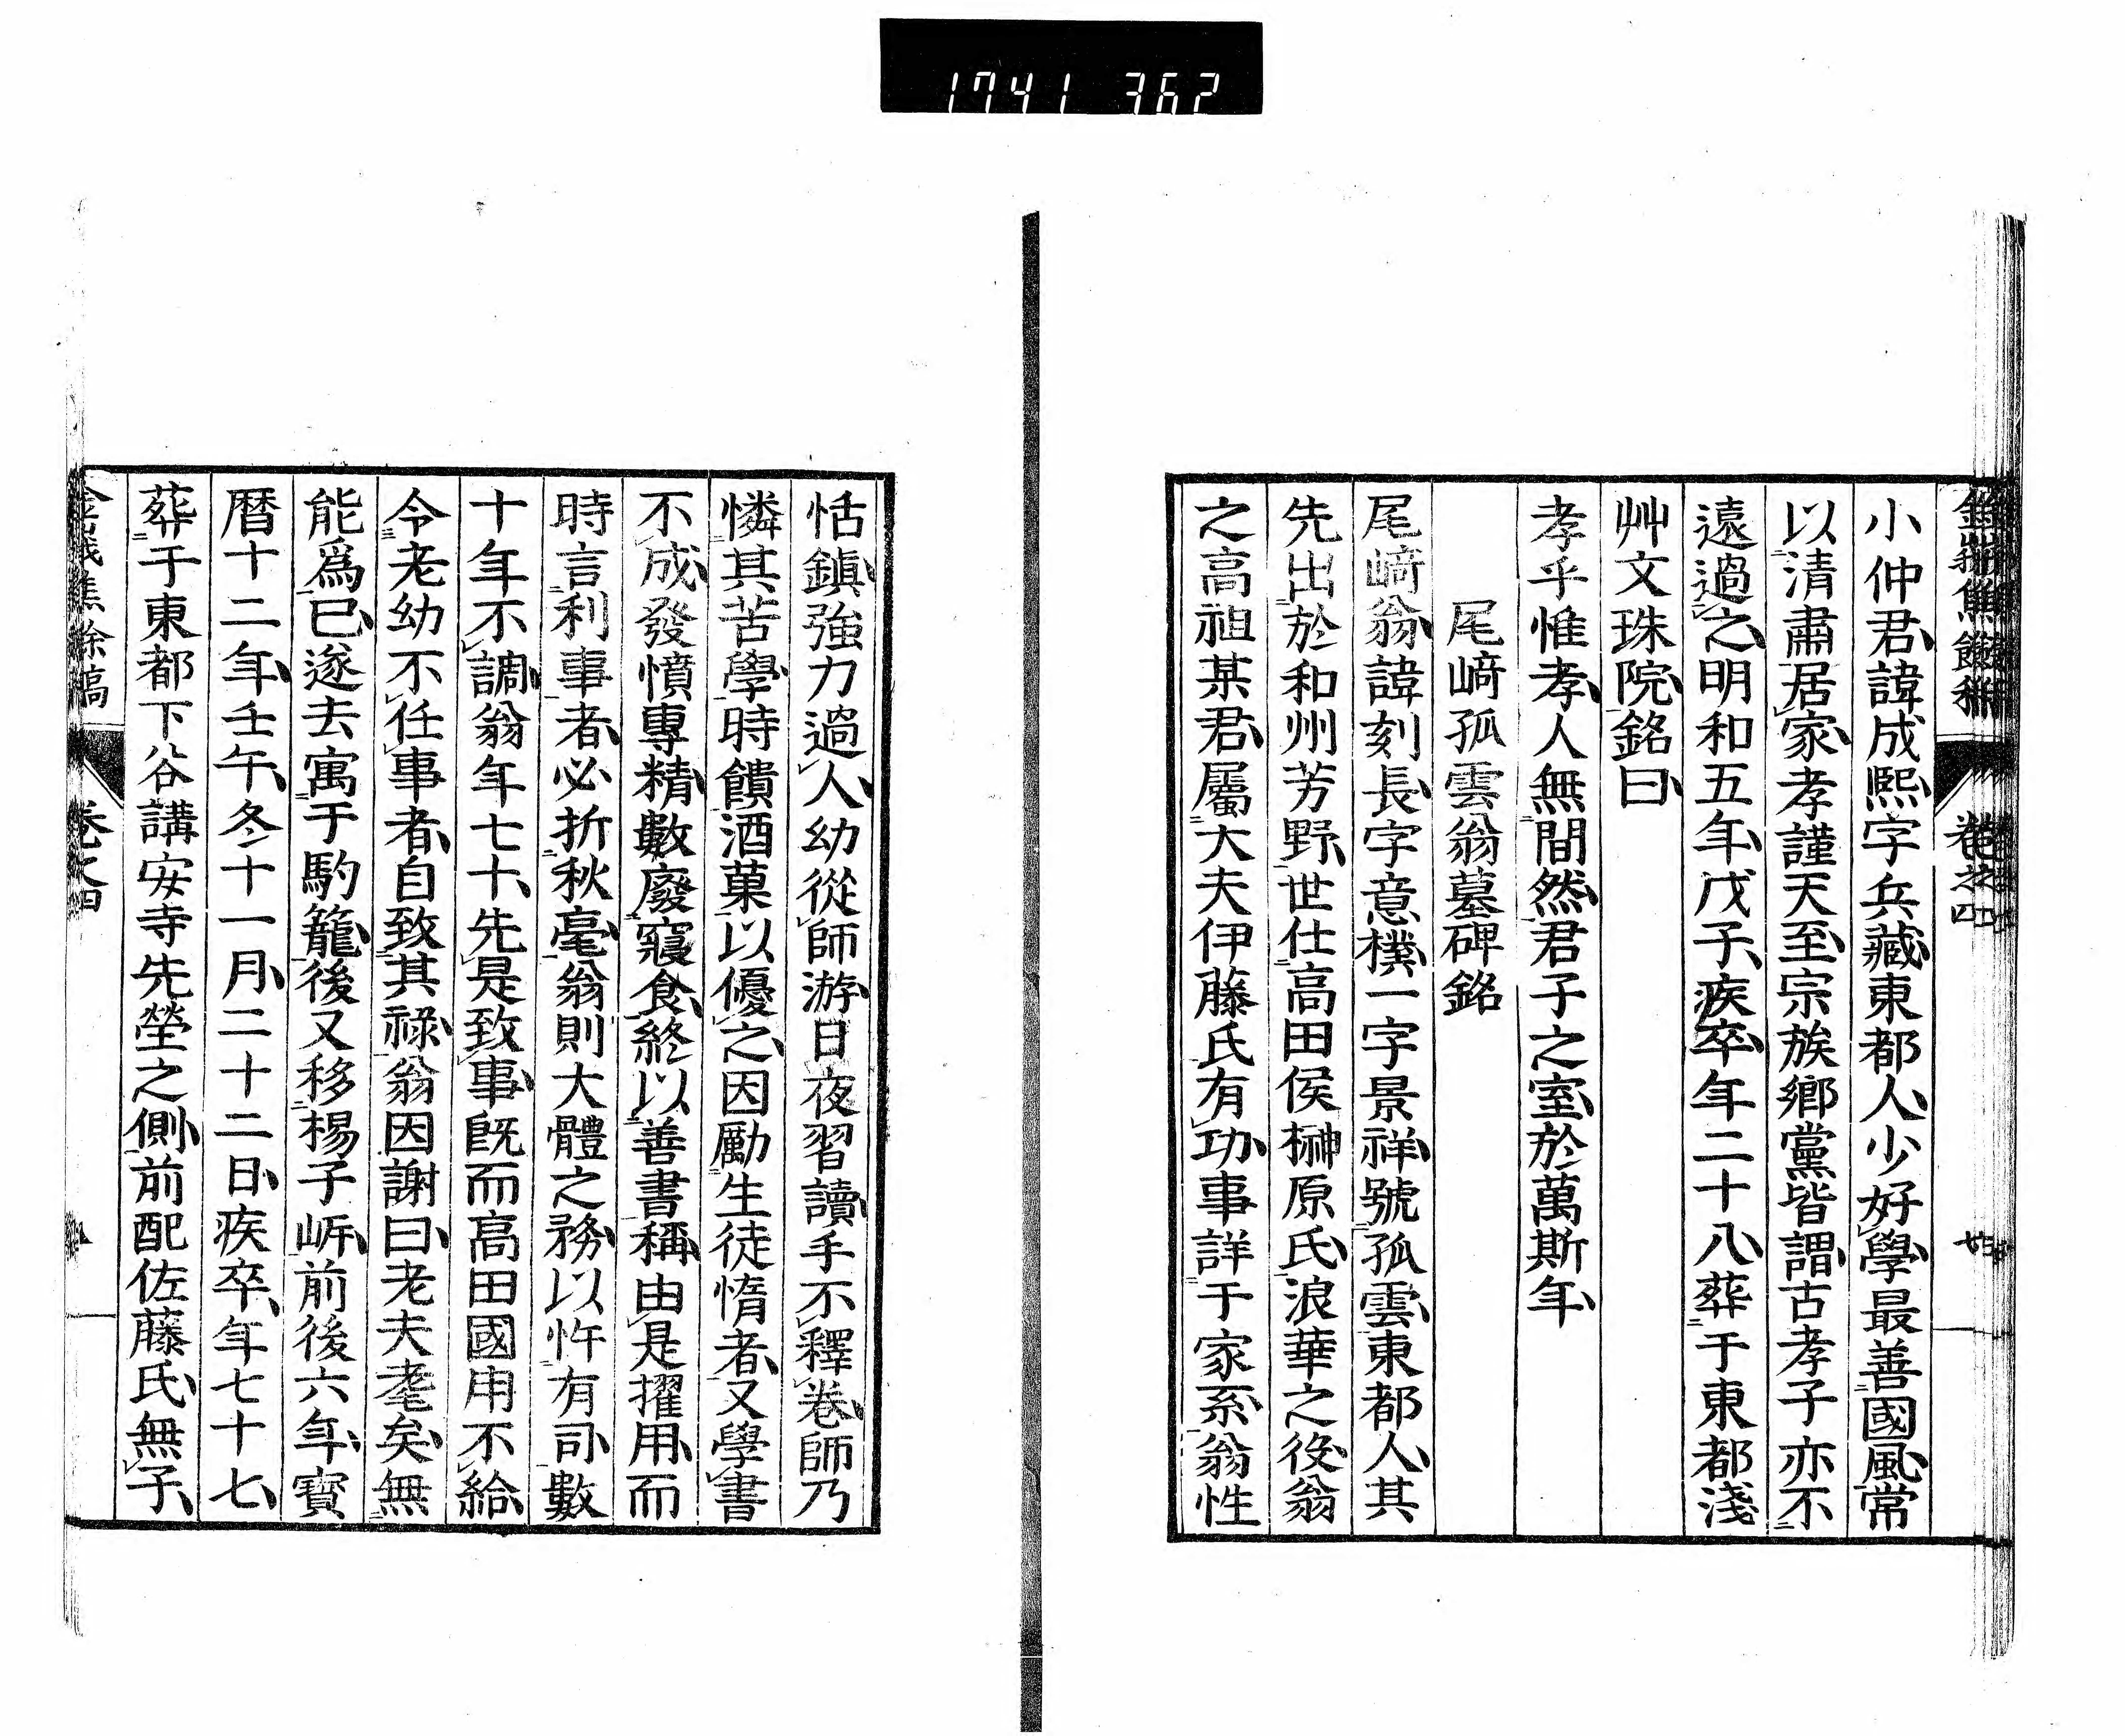 1741 362
卷之四
小仲君諱成熙字兵藏東都人少好學最善國風常
以清肅居家孝謹天至宗族鄉黨皆謂古孝子亦不
遠過之明和五年戊子疾卒年二十八葬于東都淺
艸文珠院銘曰
孝乎惟孝人無間然君子之室於萬斯年
尾﨑孤雲翁墓碑銘
尾﨑翁諱刻長字意樸一字景祥號孤雲東都人其
先出於和州芳野世仕高田侯榊原氏浪華之役翁
之高祖某君屬大夫伊藤氏有功事詳于家系翁性
恬鎮強力過人幼從師游日夜習讀手不釋卷師乃
憐其苦學時饋酒菓以優之因勵生徒惰者又學書
不成發憤專精數廢寢食終以善書稱由是擢用而
時言利事者必折秋毫翁則大體之務以忤有司數
十年不調翁年七十先是致事既而高田國用不給
令老幼不任事者自致其祿翁因謝曰老夫耄矣無
能爲已遂去寓于駒籠後又移楊子㟁前後六年寶
曆十二年壬午冬十一月二十二日疾卒年七十七
葬于東都下谷講安寺先塋之側前配佐藤氏無子
焦餘稿
卷之四